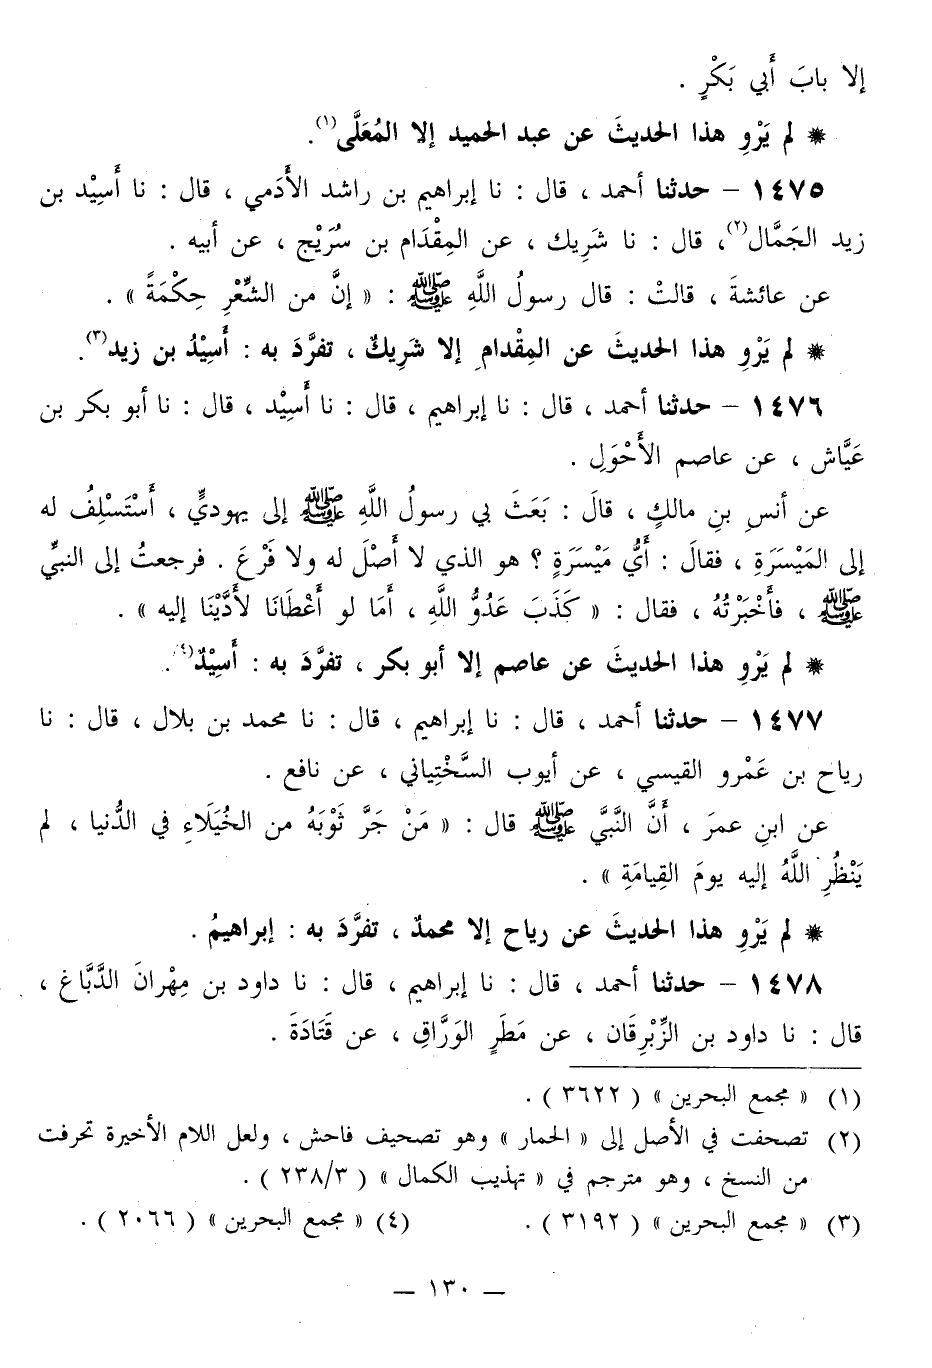 إلا بابَ أَبي بَكْرٍ .
* لم يَرْوِ هذا الحديثَ عن عبد الحميد إلا المُعَلَّى(١).
١٤٧٥ – حدثنا أحمد ، قال : نا إبراهيم بن راشد الأَدَمي ، قال : نا أَسِيْد بن
زيد الجَمَّال(٢)، قال : نا شَرِيك ، عن المِقْدَام بن سُرَيْج ، عن أبيه .
عن عائشةَ ، قالتْ : قال رسولُ اللَّهِ ﷺ : « إنَّ من الشِّعْرِ حِكْمَةً » .
* لم يَرْوِ هذا الحديثَ عن المِقْدامِ إلا شَرِيكٌ ، تفرَّدَ به : أَسِيْدُ بن زيد(٣).
١٤٧٦ – حدثنا أحمد ، قال : نا إبراهيم ، قال : نا أَسِيْد ، قال : نا أبو بكر بن
عَيَّاش ، عن عاصم الأَحْوَلِ .
عن أنسِ بنِ مالكٍ ، قالَ : بَعَثَ بي رسولُ اللَّهِ ﷺ إلى يهوديٍّ ، أَسْتَسْلِفُ له
إلى المَيْسَرَةِ ، فقالَ : أَيُّ مَيْسَرَةٍ ؟ هو الذي لا أَصْلَ له ولا فَرْعَ . فرجعتُ إلى النبيِّ
ﷺ ، فأَخْبَرْتُهُ ، فقال : « كَذَبَ عَدُوُّ اللَّهِ ، أمَا لو أَعْطَانَا لأَدَّيْنَا إليه » .
* لم يَرْوِ هذا الحديثَ عن عاصم إلا أبو بكر ، تفرَّدَ به : أَسِيْدٌ(٤).
١٤٧٧ – حدثنا أحمد ، قال : نا إبراهيم ، قال : نا محمد بن بلال ، قال : نا
رياح بن عَمْرو القيسي ، عن أيوب السَّخْتِياني ، عن نافع .
عن ابنِ عمرَ ، أَنَّ النَّبيَّ ﷺ قال : « مَنْ جَرَّ ثَوْبَهُ من الخُيَلَاءِ في الدُّنيا ، لم
يَنْظُرِ اللَّهُ إليه يومَ القِيامَةِ » .
* لم يَرْوِ هذا الحديثَ عن رياح إلا محمدٌ ، تفرَّدَ به : إبراهيمُ .
١٤٧٨ – حدثنا أحمد ، قال : نا إبراهيم ، قال : نا داود بن مِهْرانَ الدَّبَّاغ ،
قال : نا داود بن الزِّبْرِقَان ، عن مَطَرٍ الوَرَّاقِ ، عن قَتَادَةَ .
(١) « مجمع البحرين » ( ٣٦٢٢ ) .
(٢) تصحفت في الأصل إلى « الحمار » وهو تصحيف فاحش ، ولعل اللام الأخيرة تحرفت
من النسخ ، وهو مترجم في « تهذيب الكمال » ( ٢٣٨/٣ ) .
(٣) « مجمع البحرين » ( ٣١٩٢ ) . (٤) « مجمع البحرين » ( ٢٠٦٦ ) .
– ١٣٠ –